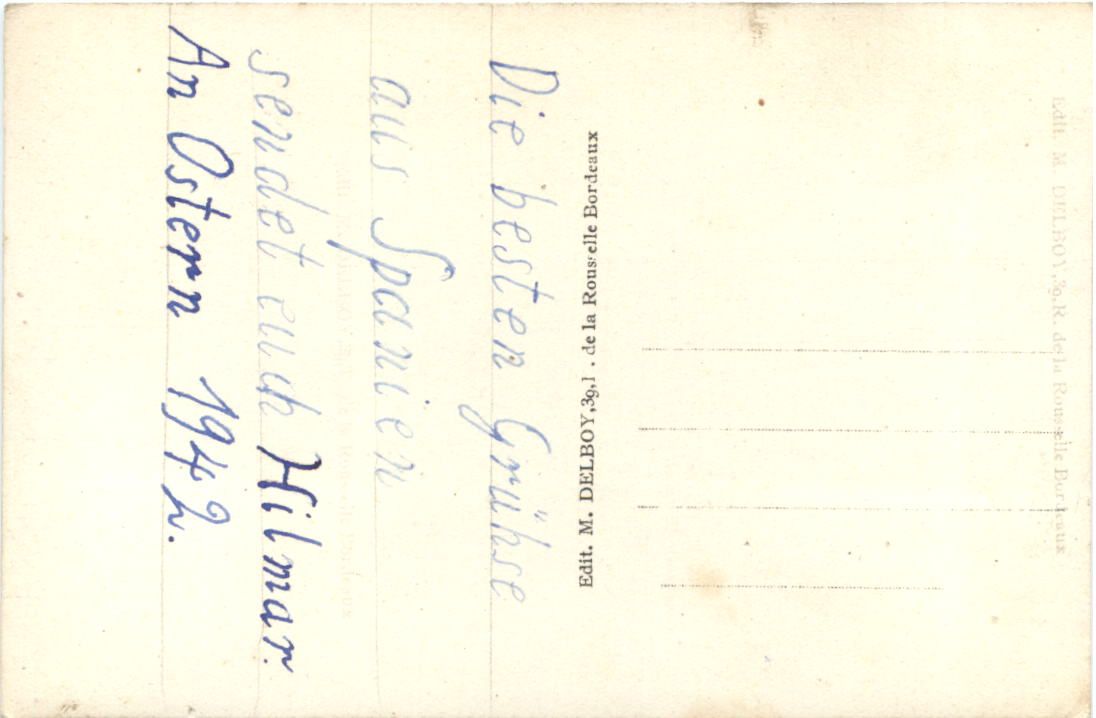 Die besten Grühse
aus Spanien
sendet euch Hilmar.
An Ostern 1942.
Edit. M. DELBOY,39,1 . de la Rousselle Bordeaux
Edit. M. DELBOY,39,R. de la Rousselle Bordeaux